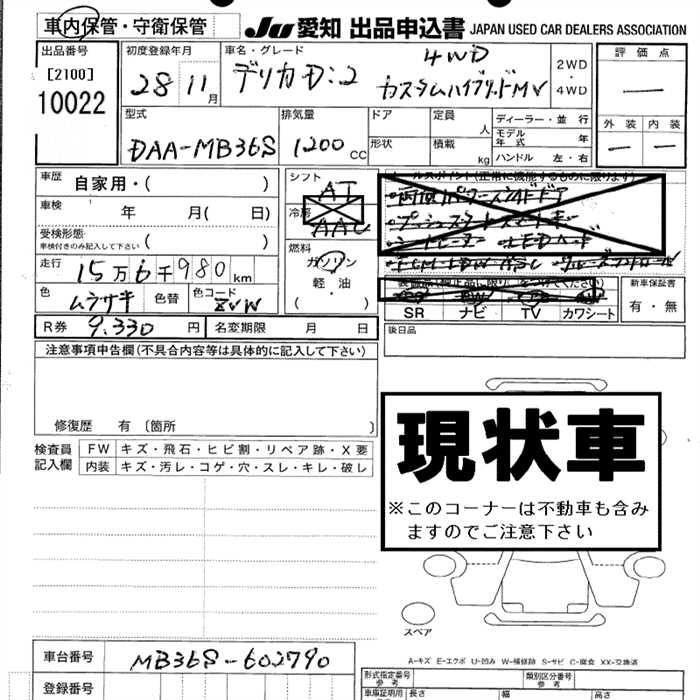 車内保管・守衛保管
JU 愛知 出品申込書 JAPAN USED CAR DEALERS ASSOCIATION
出品番号
[2100]
10022
初度登録年月
28 11月
車名・グレード
デリカD:2
4WD
カスタムハイブリッドMV
2WD
・
4WD
評価点
—
外装 内装
— —
型式
DAA-MB36S
排気量
1200 CC
ドア
形状
定員 人
積載 kg
ディーラー・並行
モデル年式 年
ハンドル 左・右
車歴 自家用・( )
車検 年 月( 日)
受検形態
車検付きのみ記入して下さい ( )
走行 15万6千980km
色 ムラサキ 色替 色コード ZVW
R券 9.330円 名変期限 月 日
シフト
AT
冷房
AAC
燃料
ガソリン
軽・油
( )
セールスポイント(正常に機能するものに限ります)
・両側パワースライドドア
・プッシュスタート スマートキー
・シートヒーター ・LEDヘッド
SR ナビ TV カワシート
新車保証書
有・無
後日品
注意事項申告欄(不具合内容等は具体的に記入して下さい)
修復歴 有〔箇所 〕
検査員
記入欄
FW キズ・飛石・ヒビ割・リペア跡・X要
内装 キズ・汚レ・コゲ・穴・スレ・キレ・破レ
現状車
※このコーナーは不動車も含み
ますのでご注意下さい
スペア
A-キズ E-エクボ U-凹み W-補修跡 S-サビ C-腐食 XX-交換済
車台番号 MB36S-602790
登録番号
型式指定番号
参考
類別区分番号
参考
車庫証明用
長さ 幅 高さ